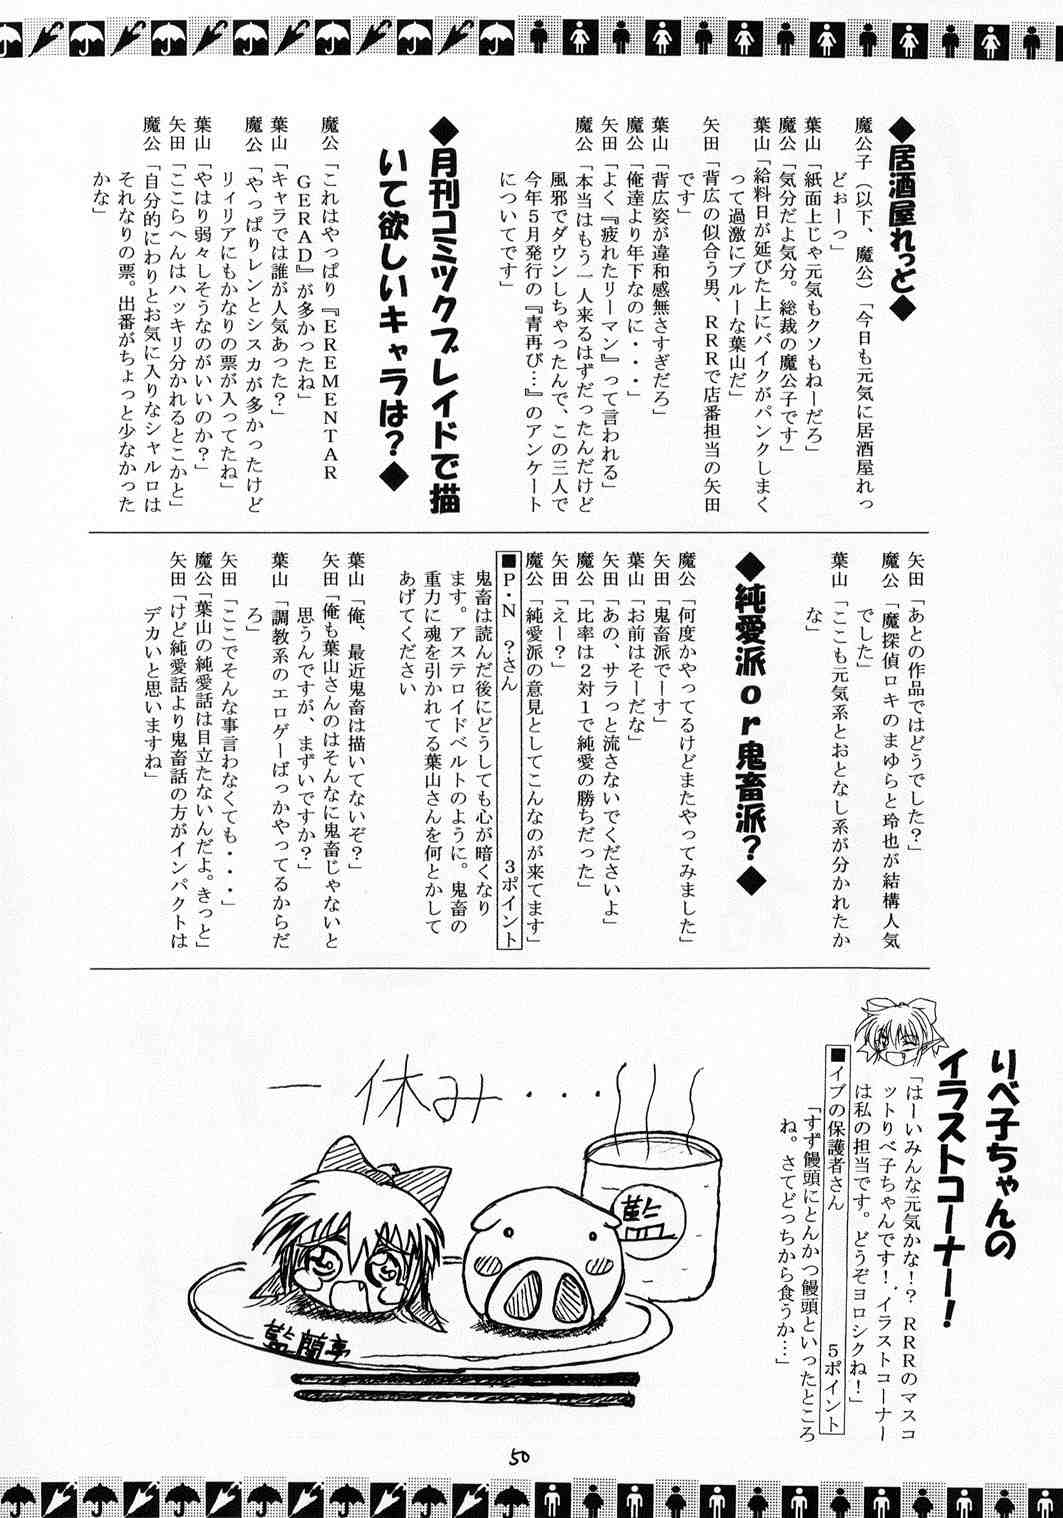 ◆居酒屋れっど◆
魔公子（以下、魔公）「今日も元気に居酒屋れっ
どぉーっ」
葉山「紙面上じゃ元気もクソもねーだろ」
魔公「気分だよ気分。総裁の魔公子です」
葉山「給料日が延びた上にバイクがパンクしまく
って過激にブルーな葉山だ」
矢田「背広の似合う男、RRRで店番担当の矢田
です」
葉山「背広姿が違和感無さすぎだろ」
魔公「俺達より年下なのに・・・」
矢田「よく『疲れたリーマン』って言われる」
魔公「本当はもう一人来るはずだったんだけど
風邪でダウンしちゃったんで、この三人で
今年5月発行の『青再び…』のアンケート
についてです」
◆月刊コミックブレイドで描
いて欲しいキャラは？◆
魔公「これはやっぱり『EREMENTAR
GERAD』が多かったね」
葉山「キャラでは誰が人気あった？」
魔公「やっぱりレンとシスカが多かったけど
リィリアにもかなりの票が入ってたね」
葉山「やはり弱々しそうなのがいいのか？」
矢田「ここらへんはハッキリ分かれるとこかと」
魔公「自分的にわりとお気に入りなシャルロは
それなりの票。出番がちょっと少なかった
かな」
矢田「あとの作品ではどうでした？」
魔公「魔探偵ロキのまゆらと玲也が結構人気
でした」
葉山「ここも元気系とおとなし系が分かれたか
な」
◆純愛派or鬼畜派？◆
魔公「何度かやってるけどまたやってみました」
矢田「鬼畜派でーす」
葉山「お前はそーだな」
矢田「あの、サラっと流さないでくださいよ」
魔公「比率は2対1で純愛の勝ちだった」
矢田「えー？」
魔公「純愛派の意見としてこんなのが来てます」
■P・N　？さん　3ポイント
鬼畜は読んだ後にどうしても心が暗くなり
ます。アステロイドベルトのように。鬼畜の
重力に魂を引かれてる葉山さんを何とかして
あげてください
葉山「俺、最近鬼畜は描いてないぞ？」
矢田「俺も葉山さんのはそんなに鬼畜じゃないと
思うんですが、まずいですか？」
葉山「調教系のエロゲーばっかやってるからだ
ろ」
矢田「ここでそんな事言わなくても・・・」
魔公「葉山の純愛話は目立たないんだよ。きっと」
矢田「けど純愛話より鬼畜話の方がインパクトは
デカいと思いますね」
りべ子ちゃんの
イラストコーナー！
「はーいみんな元気かな！？RRRのマスコ
ットりべ子ちゃんです！．イラストコーナー
は私の担当です。どうぞヨロシクね！」
■イブの保護者さん　5ポイント
「すず饅頭にとんかつ饅頭といったところ
ね。さてどっちから食うか…」
一休み・・・
藍
藍蘭亭
50